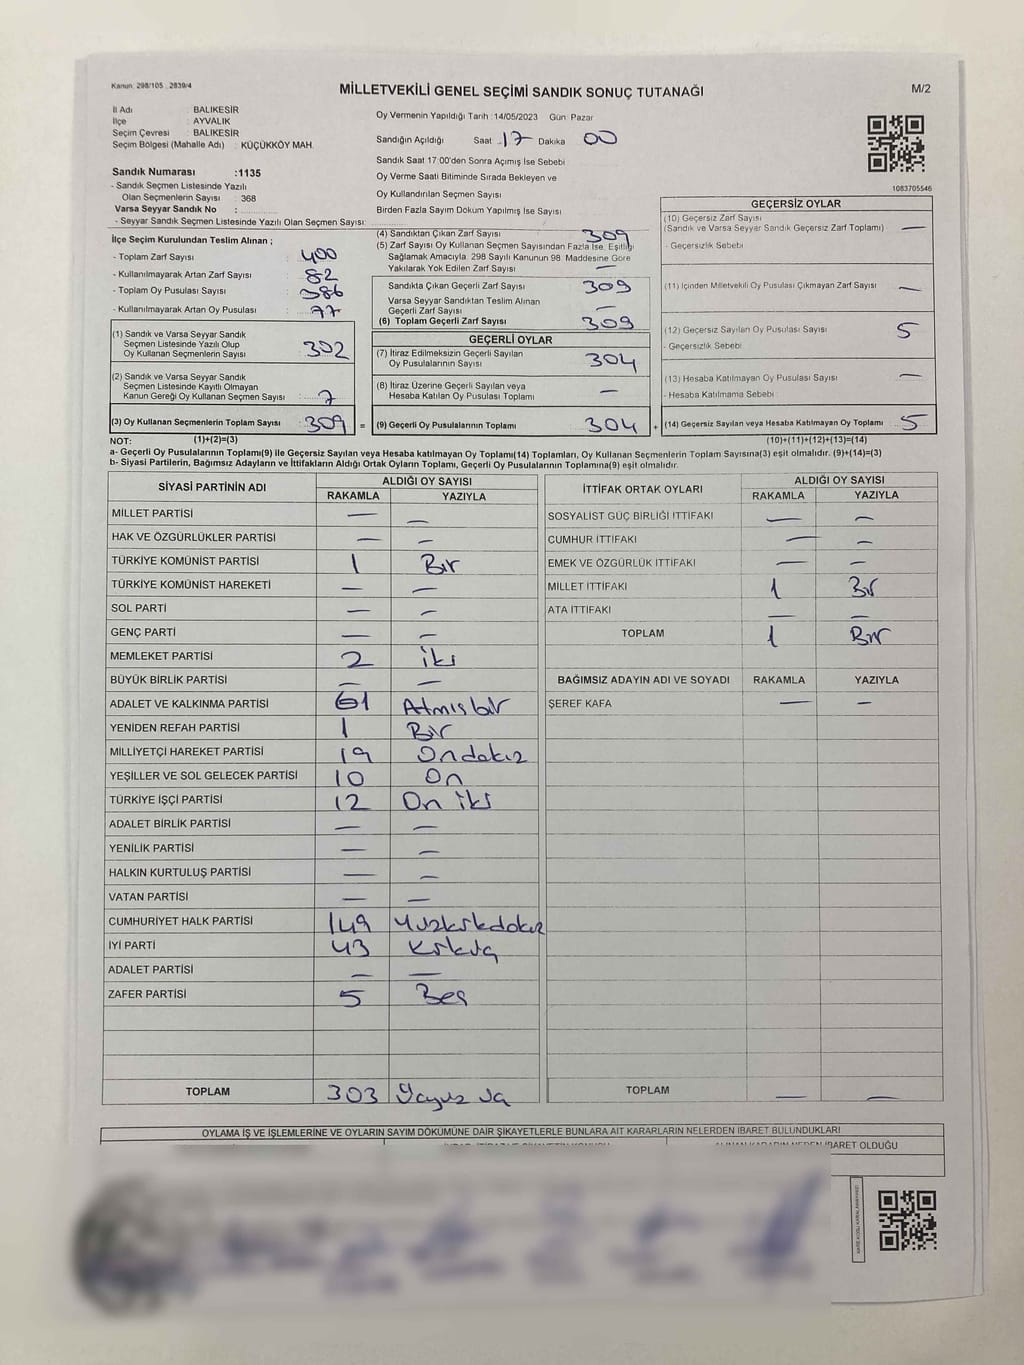 Kanun 298/105 , 2839/4
MİLLETVEKİLİ GENEL SEÇİMİ SANDIK SONUÇ TUTANAĞI
M/2
İl Adı : BALIKESİR
İlçe : AYVALIK
Seçim Çevresi : BALIKESİR
Seçim Bölgesi (Mahalle Adı) : KÜÇÜKKÖY MAH.
Sandık Numarası :1135
- Sandık Seçmen Listesinde Yazılı
Olan Seçmenlerin Sayısı : 368
Varsa Seyyar Sandık No :
- Seyyar Sandık Seçmen Listesinde Yazılı Olan Seçmen Sayısı:
Oy Vermenin Yapıldığı Tarih :14/05/2023 Gün: Pazar
Sandığın Açıldığı Saat 17 Dakika 00
Sandık Saat 17:00'den Sonra Açımış İse Sebebi
Oy Verme Saati Bitiminde Sırada Bekleyen ve
Oy Kullandırılan Seçmen Sayısı
Birden Fazla Sayım Döküm Yapılmış İse Sayısı
1083705546
İlçe Seçim Kurulundan Teslim Alınan ;
- Toplam Zarf Sayısı : 400
- Kullanılmayarak Artan Zarf Sayısı : 82
- Toplam Oy Pusulası Sayısı : 386
- Kullanılmayarak Artan Oy Pusulası : 77
(1) Sandık ve Varsa Seyyar Sandık
Seçmen Listesinde Yazılı Olup
Oy Kullanan Seçmenlerin Sayısı : 302
(2) Sandık ve Varsa Seyyar Sandık
Seçmen Listesinde Kayıtlı Olmayan
Kanun Gereği Oy Kullanan Seçmen Sayısı : 7
(3) Oy Kullanan Seçmenlerin Toplam Sayısı : 309 =
(4) Sandıktan Çıkan Zarf Sayısı 309
(5) Zarf Sayısı Oy Kullanan Seçmen Sayısından Fazla İse, Eşitliği
Sağlamak Amacıyla, 298 Sayılı Kanunun 98. Maddesine Göre
Yakılarak Yok Edilen Zarf Sayısı —
Sandıkta Çıkan Geçerli Zarf Sayısı 309
Varsa Seyyar Sandıktan Teslim Alınan
Geçerli Zarf Sayısı —
(6) Toplam Geçerli Zarf Sayısı 309
GEÇERLİ OYLAR
(7) İtiraz Edilmeksizin Geçerli Sayılan
Oy Pusulalarının Sayısı 304
(8) İtiraz Üzerine Geçerli Sayılan veya
Hesaba Katılan Oy Pusulası Toplamı —
(9) Geçerli Oy Pusulalarının Toplamı 304 +
GEÇERSİZ OYLAR
(10) Geçersiz Zarf Sayısı
(Sandık ve Varsa Seyyar Sandık Geçersiz Zarf Toplamı) —
- Geçersizlik Sebebi
(11) İçinden Milletvekili Oy Pusulası Çıkmayan Zarf Sayısı —
(12) Geçersiz Sayılan Oy Pusulası Sayısı 5
- Geçersizlik Sebebi
(13) Hesaba Katılmayan Oy Pusulası Sayısı —
- Hesaba Katılmama Sebebi
(14) Geçersiz Sayılan veya Hesaba Katılmayan Oy Toplamı 5
NOT: (1)+(2)=(3) (10)+(11)+(12)+(13)=(14)
a- Geçerli Oy Pusulasının Toplamı(9) ile Geçersiz Sayılan veya Hesaba Katılmayan Oy Toplamı(14) Toplamları, Oy Kullanan Seçmenlerin Toplam Sayısına(3) eşit olmalıdır. (9)+(14)=(3)
b- Siyasi Partilerin, Bağımsız Adayların ve İttifakların Aldığı Ortak Oyların Toplamı, Geçerli Oy Pusulalarının Toplamına(9) eşit olmalıdır.
SİYASİ PARTİNİN ADI ALDIĞI OY SAYISI
RAKAMLA YAZIYLA
MİLLET PARTİSİ — —
HAK VE ÖZGÜRLÜKLER PARTİSİ — —
TÜRKİYE KOMÜNİST PARTİSİ 1 Bir
TÜRKİYE KOMÜNİST HAREKETİ — —
SOL PARTİ — —
GENÇ PARTİ — —
MEMLEKET PARTİSİ 2 iki
BÜYÜK BİRLİK PARTİSİ — —
ADALET VE KALKINMA PARTİSİ 61 Atmış bir
YENİDEN REFAH PARTİSİ 1 Bir
MİLLİYETÇİ HAREKET PARTİSİ 19 Ondokuz
YEŞİLLER VE SOL GELECEK PARTİSİ 10 On
TÜRKİYE İŞÇİ PARTİSİ 12 On iki
ADALET BİRLİK PARTİSİ — —
YENİLİK PARTİSİ — —
HALKIN KURTULUŞ PARTİSİ — —
VATAN PARTİSİ — —
CUMHURİYET HALK PARTİSİ 149 Yüzkırkdokuz
İYİ PARTİ 43 Kırküç
ADALET PARTİSİ — —
ZAFER PARTİSİ 5 Beş
TOPLAM 303 Üçyüz üç
İTTİFAK ORTAK OYLARI ALDIĞI OY SAYISI
RAKAMLA YAZIYLA
SOSYALİST GÜÇ BİRLİĞİ İTTİFAKI — —
CUMHUR İTTİFAKI — —
EMEK VE ÖZGÜRLÜK İTTİFAKI — —
MİLLET İTTİFAKI 1 Bir
ATA İTTİFAKI — —
TOPLAM 1 Bir
BAĞIMSIZ ADAYIN ADI VE SOYADI RAKAMLA YAZIYLA
ŞEREF KAFA — —
TOPLAM — —
OYLAMA İŞ VE İŞLEMLERİNE VE OYLARIN SAYIM DÖKÜMÜNE DAİR ŞİKAYETLERLE BUNLARA AİT KARARLARIN NELERDEN İBARET BULUNDUKLARI
İBARET OLDUĞU